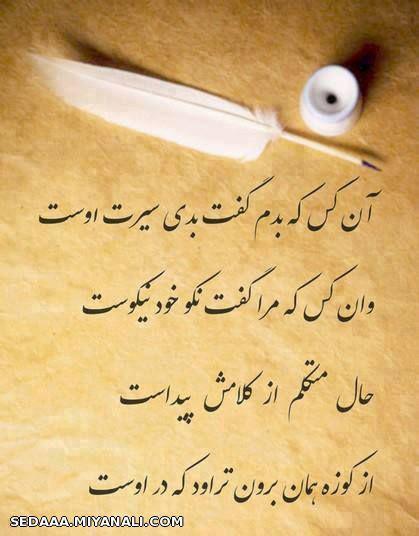 آن کس که بدم گفت بدی سیرت اوست
وان کس که مرا گفت نکو خود نیکوست
حال متکلم از کلامش پیداست
از کوزه همان برون تراود که در اوست
SEDAAA.MIYANALI.COM